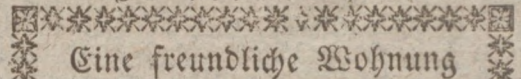 Eine freundliche Wohnung